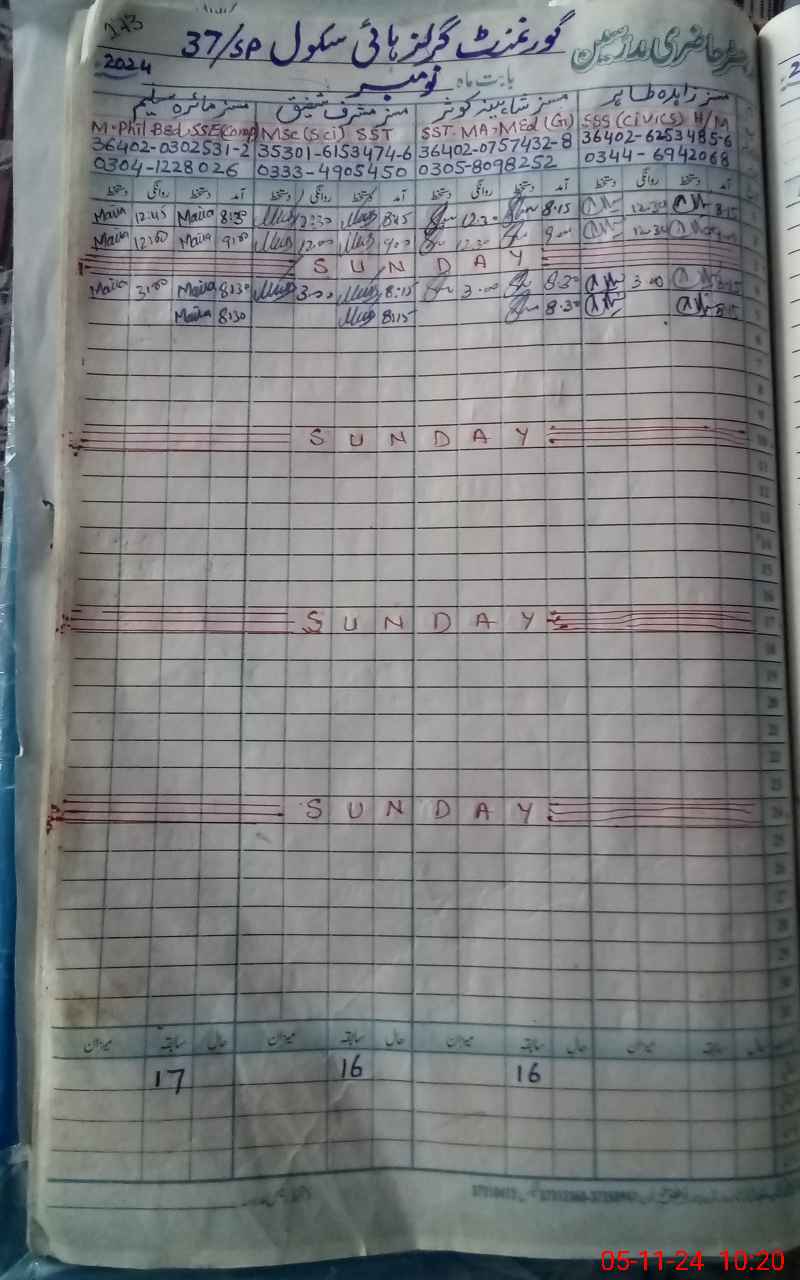 143
گورنمنٹ گرلز ہائی سکول 37/SP
رجسٹر حاضری مدرسین
2024
بابت ماہ نومبر
مسز زاہدہ طاہر
مسز شاہینہ کوثر
مسز مشرف شفیق
مسز مائرہ سلیم
M.Phil B.Ed. SSE(Comp) MSc (Sci) SST SST. MA. MEd (G) SSS (Civics) H/M
36402-0302531-2 35301-6153474-6 36402-0757432-8 36402-6253485-6
0304-1228026 0333-4905450 0305-8098252 0344-6942068
دستخط روانگی دستخط آمد دستخط روانگی دستخط آمد دستخط روانگی دستخط آمد دستخط روانگی دستخط آمد
Maira 12:45 Maira 8:30 12:30 8:45 12:30 8:15 12:30 8:15
Maira 12:00 Maira 9:00 12:00 9:00 12:30 9:00 12:30 9:00
SUNDAY
Maira 3:00 Maira 8:30 3:00 8:15 3:00 8:30 3:00 8:15
Maira 8:30 8:15 8:30 8:15
SUNDAY
SUNDAY
SUNDAY
میزان سابقہ حال میزان سابقہ حال میزان سابقہ حال میزان سابقہ حال
17 16 16
05-11-24 10:20